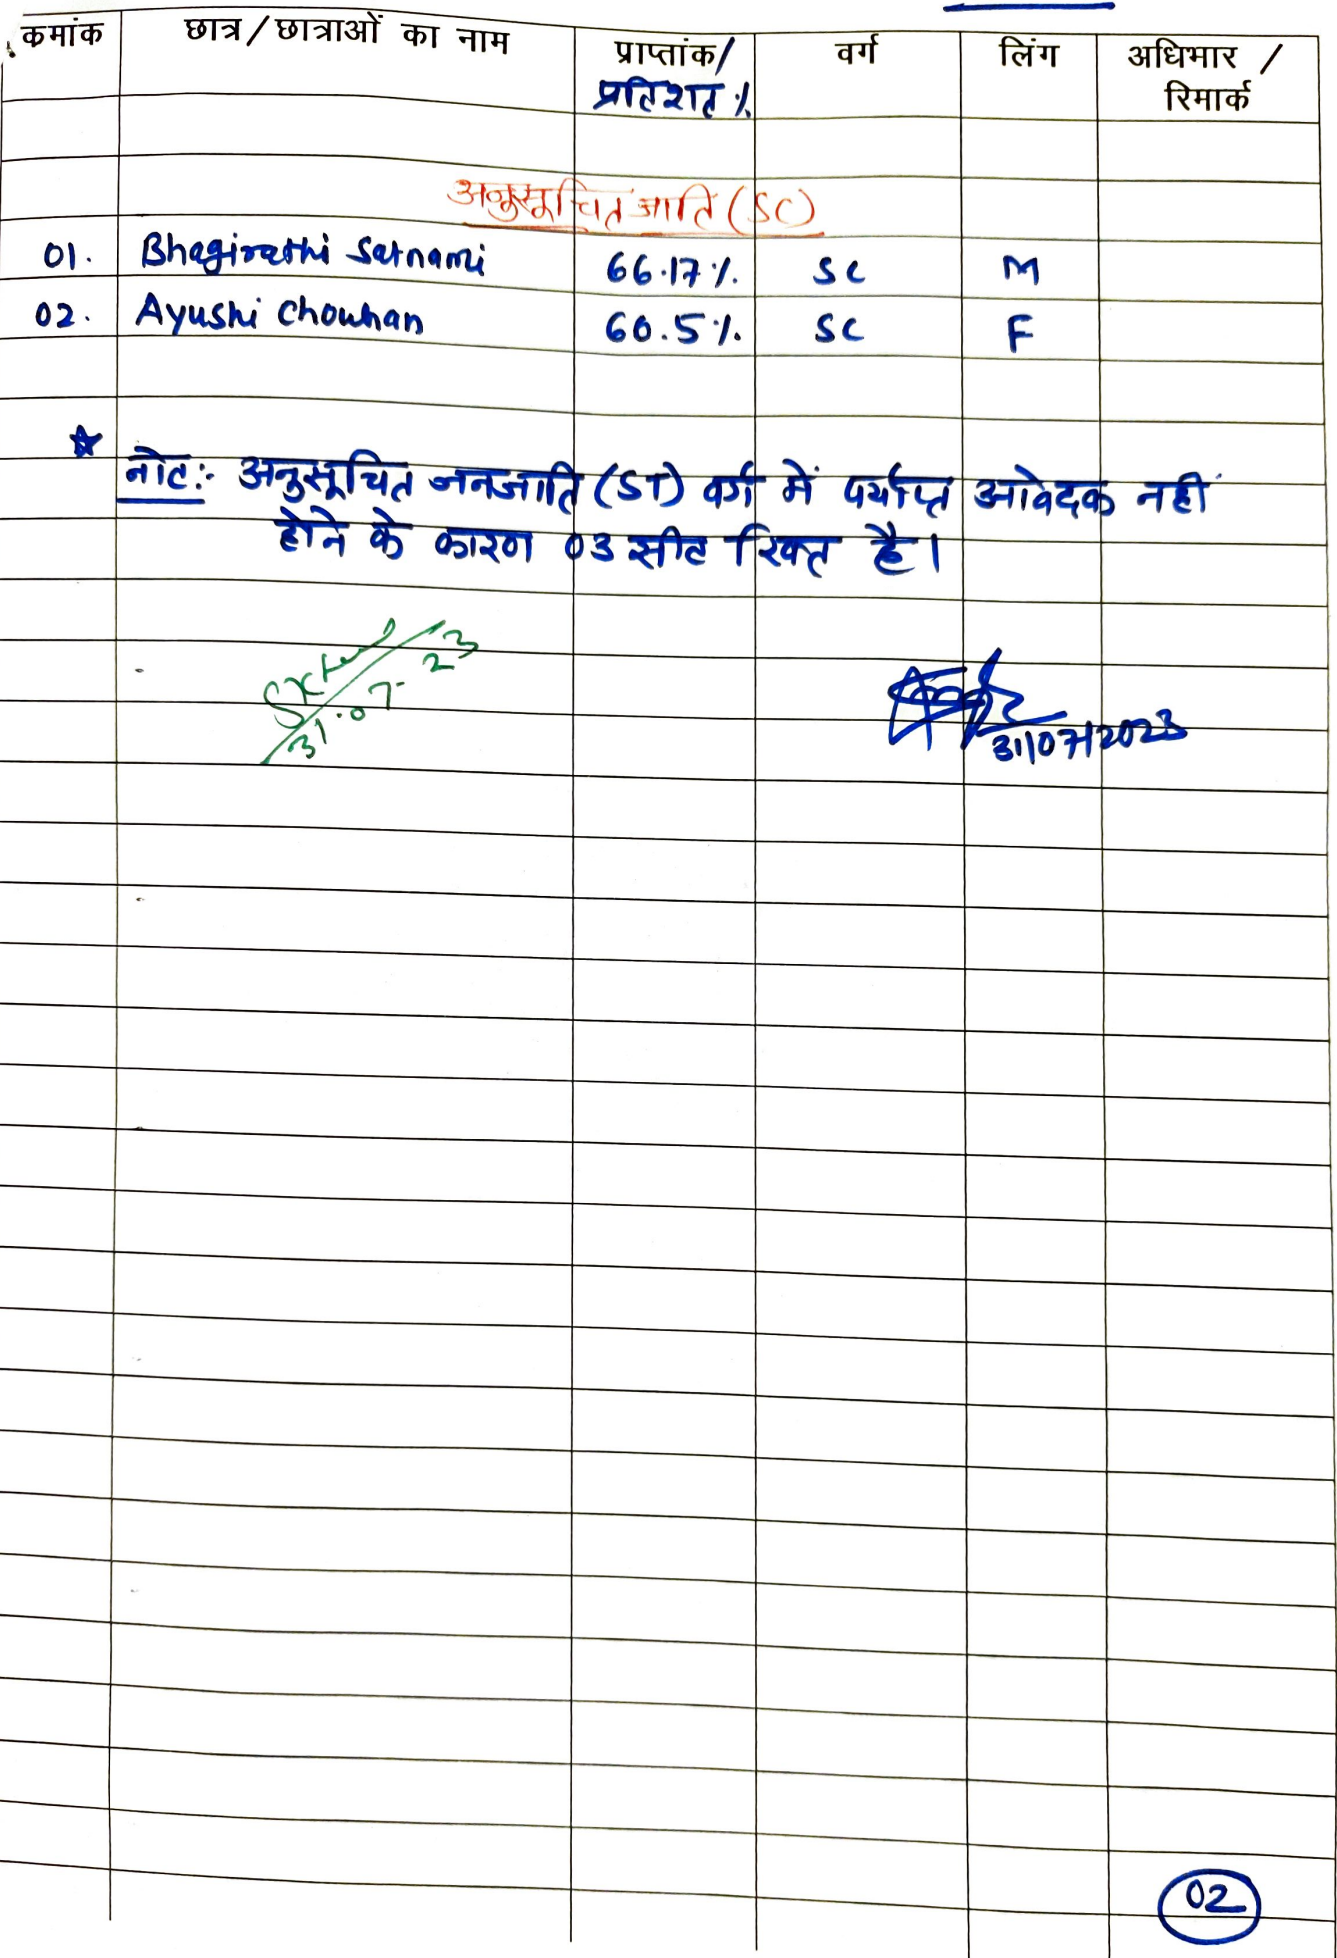 कमांक छात्र/छात्राओं का नाम प्राप्तांक/ वर्ग लिंग अधिभार /
प्रतिशत % रिमार्क
अनुसूचित जाति (SC)
01. Bhagirathi Satnami 66.17%. SC M
02. Ayushi Chouhan 60.5%. SC F
नोट:- अनुसूचित जनजाति (ST) वर्ग में पर्याप्त आवेदक नहीं
होने के कारण 03 सीट रिक्त है।
31.07.23
31/07/2023
02